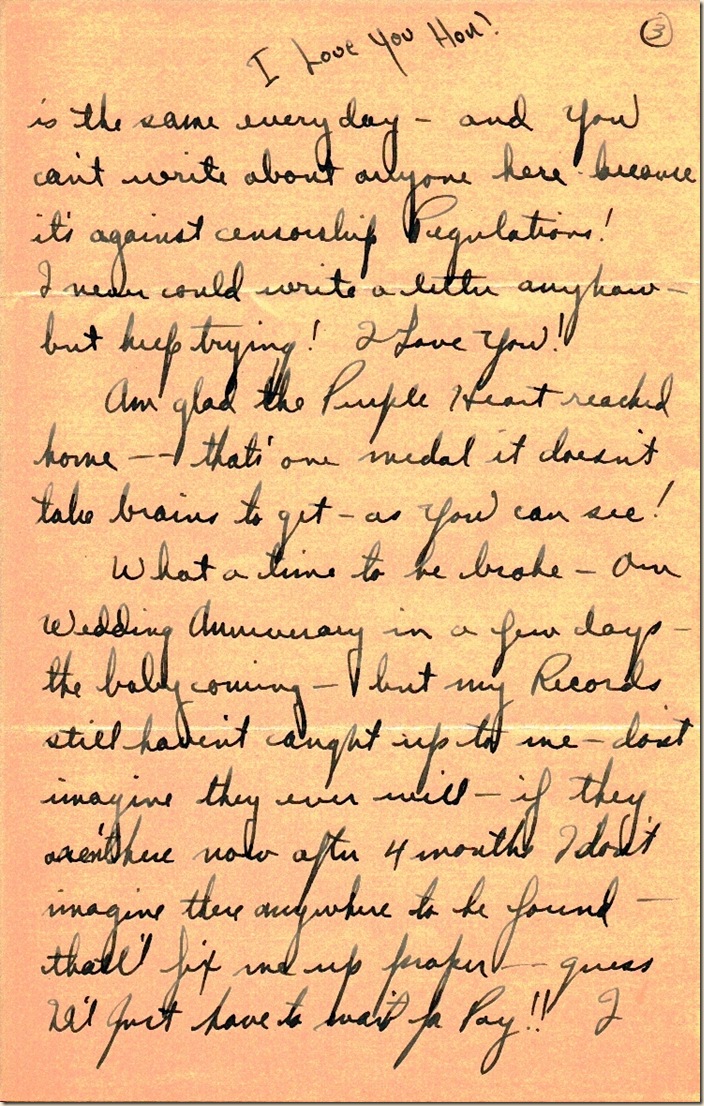 I Love You Hon!
3
is the same everyday — and you
can't write about anyone here because
it's against censorship Regulations!
I never could write a letter anyhow —
but keep trying! I Love You!
Am glad the Purple Heart reached
home –– that's one medal it doesn't
take brains to get – as you can see!
What a time to be broke – Our
Wedding Anniversary in a few days –
the baby coming – but my Records
still haven't caught up to me – don't
imagine they ever will – if they
aren't here now after 4 months I don't
imagine there anywhere to be found —
that'll fix me up proper –– guess
I'll just have to wait for Pay!! I